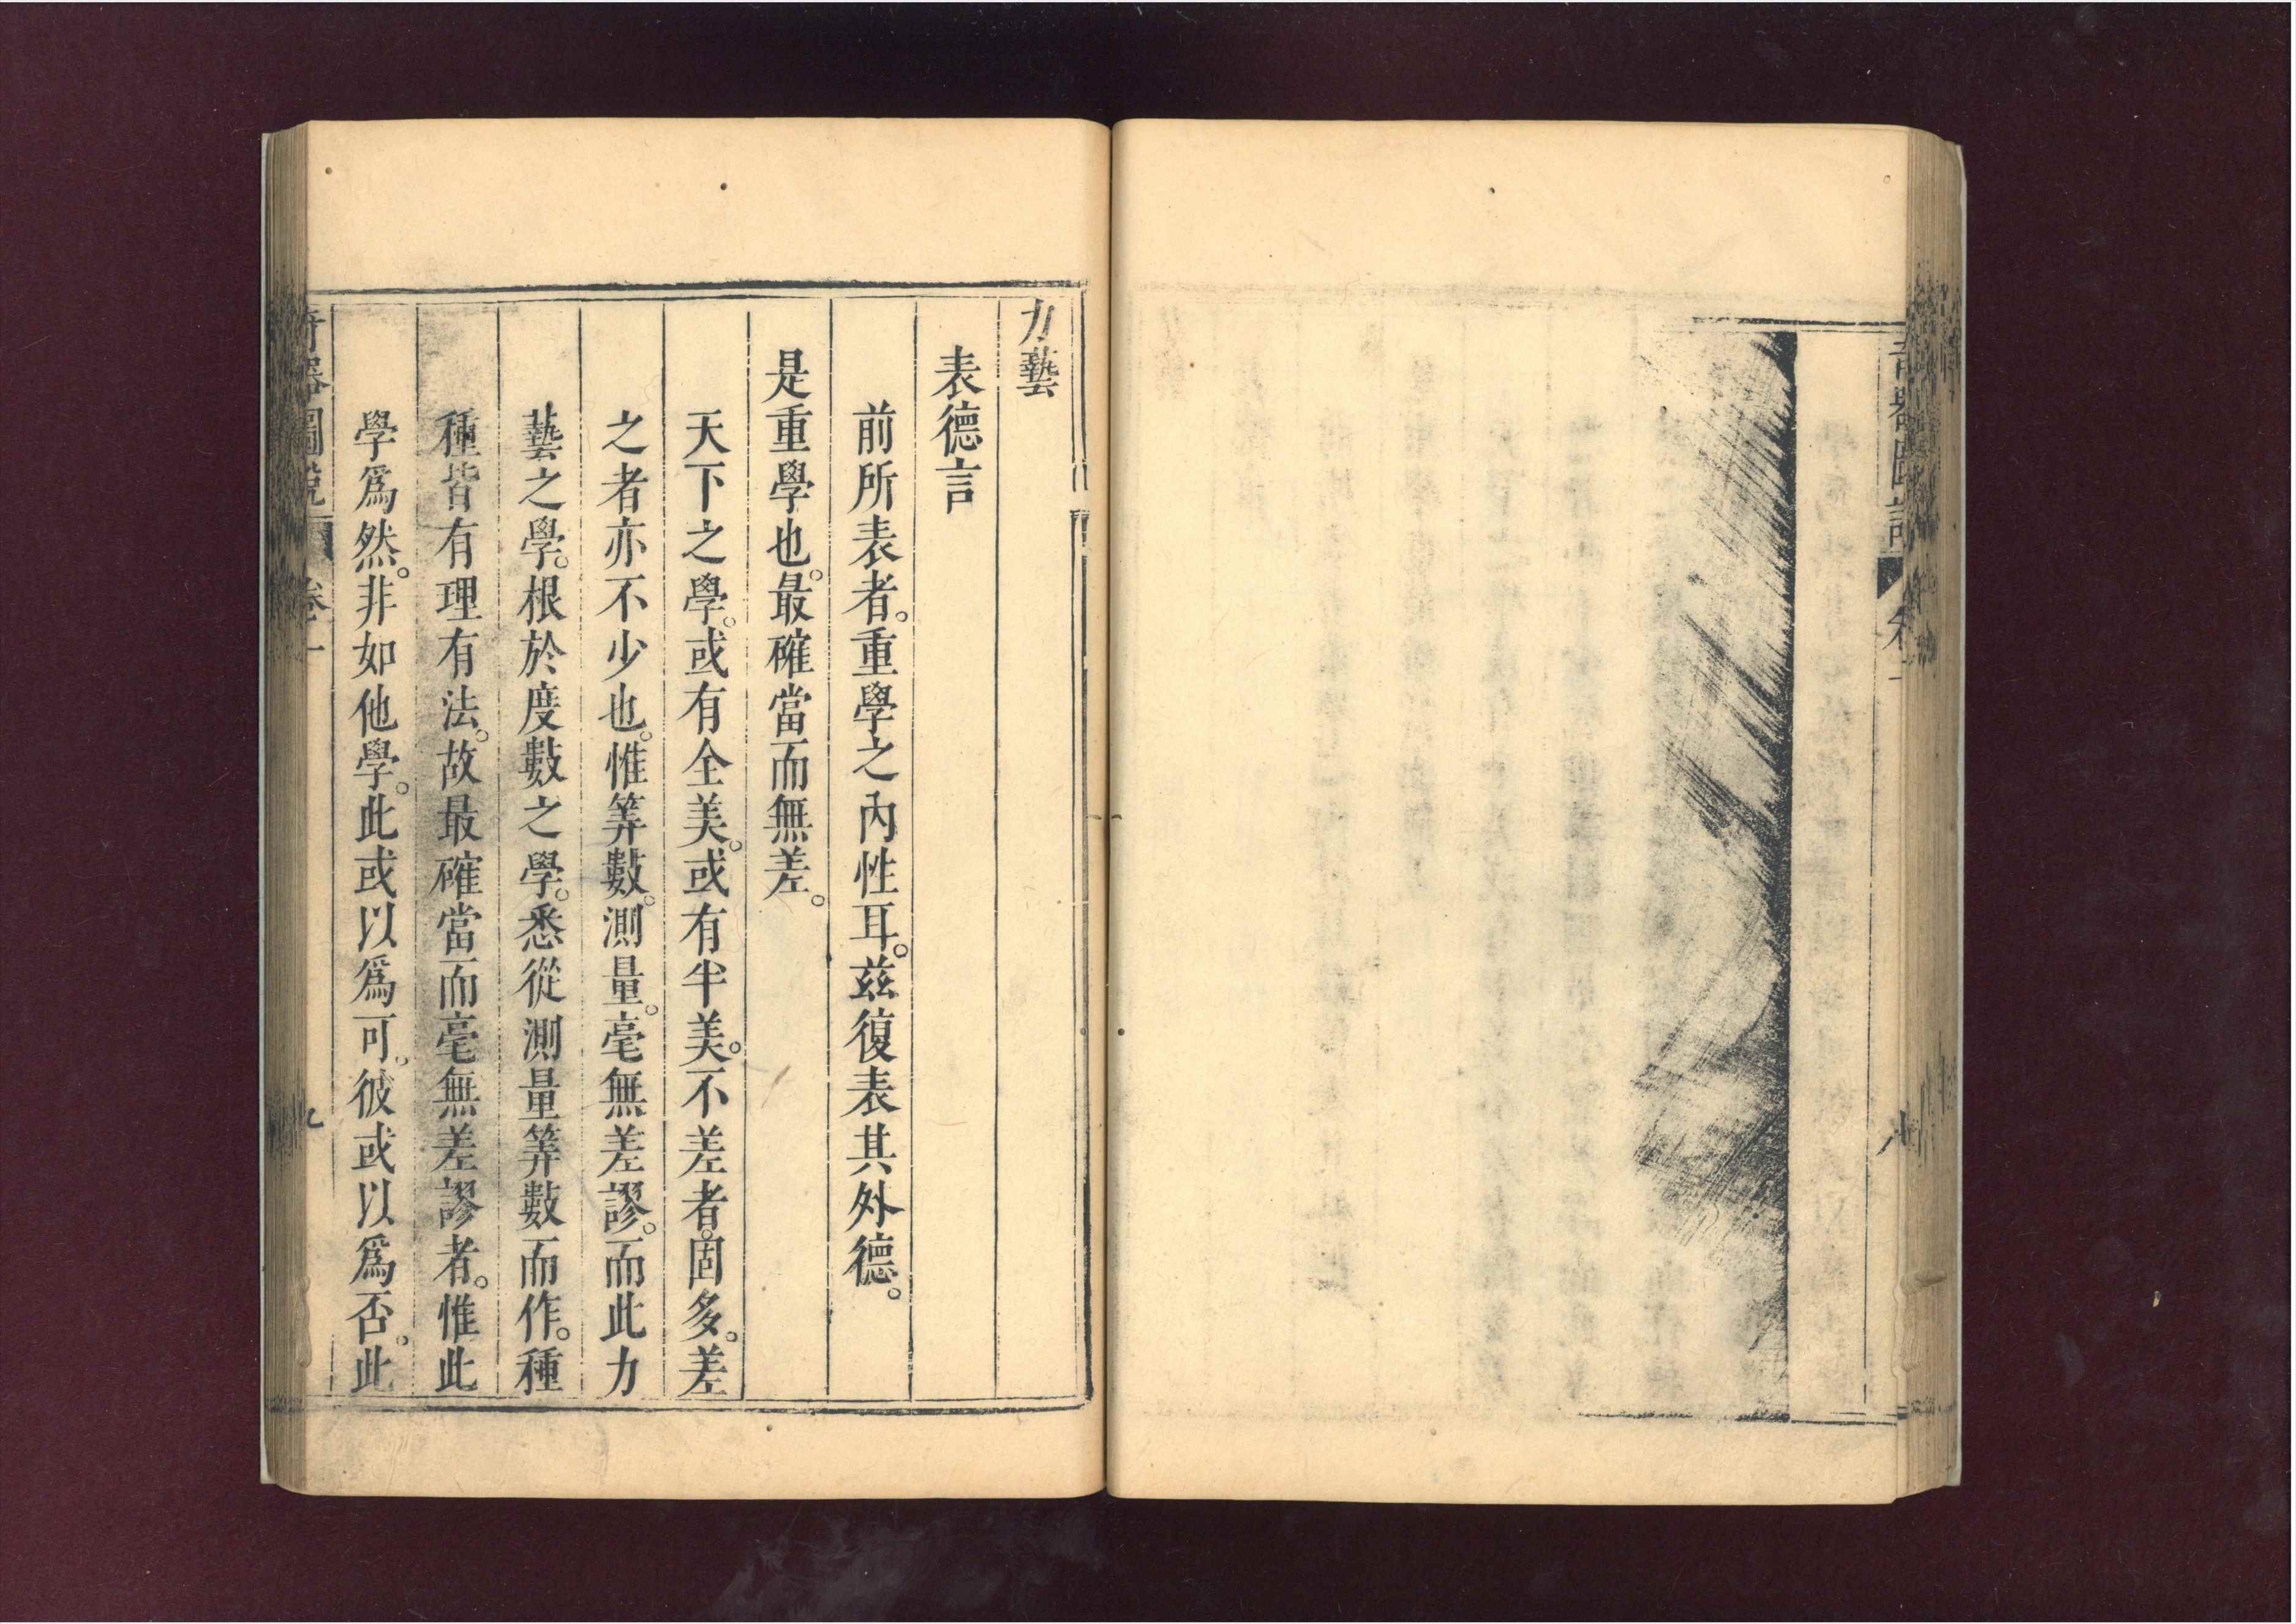 奇器圖說 卷一 八
力藝
表德言
前所表者。重學之內性耳。茲復表其外德。
是重學也。最確當而無差。
天下之學。或有全美。或有半美。不差者。固多。差
之者亦不少也。惟筭數。測量。毫無差謬。而此力
藝之學。根於度數之學。悉從測量筭數而作。種
種皆有理有法。故最確當而毫無差謬者。惟此
學為然。非如他學。此或以為可。彼或以為否。此
奇器圖說 卷一 九